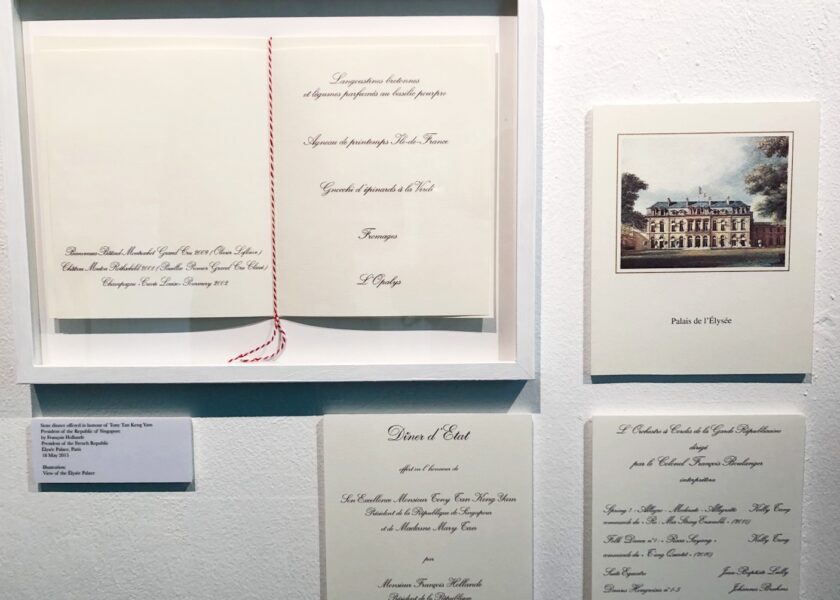 Langoustines bretonnes
et légumes parfumés au basilic pourpre
Agneau de printemps Ile-de-France
Gnocchi d'épinards à la Verdi
Fromages
L'Opalys
Bâtard Montrachet Grand Cru 2009 (Olivier Leflaive)
Château Mouton Rothschild 2001 (Pauillac Premier Grand Cru Classé)
Champagne - Cuvée Louise - Pommery 2002
Palais de l'Élysée
State dinner offered in honour of Tony Tan Keng Yam
President of the Republic of Singapore
by François Hollande
President of the French Republic
Élysée Palace, Paris
18 May 2015
Illustration:
View of the Élysée Palace
Dîner d'Etat
offert en l'honneur de
Son Excellence Monsieur Tony Tan Keng Yam
Président de la République de Singapour
et de Madame Mary Tan
par
Monsieur François Hollande
Président de la République
L'Orchestre à Cordes de la Garde Républicaine
dirigé
par le Colonel François Boulanger
interprétera
Spring! - Allegro - Moderato - Allegretto Kelly Tang
commande du
Kelly Tang
commande du « T'ang Quartet »
Suite Jean-Baptiste Lully
Danses Hongroises Johannes Brahms